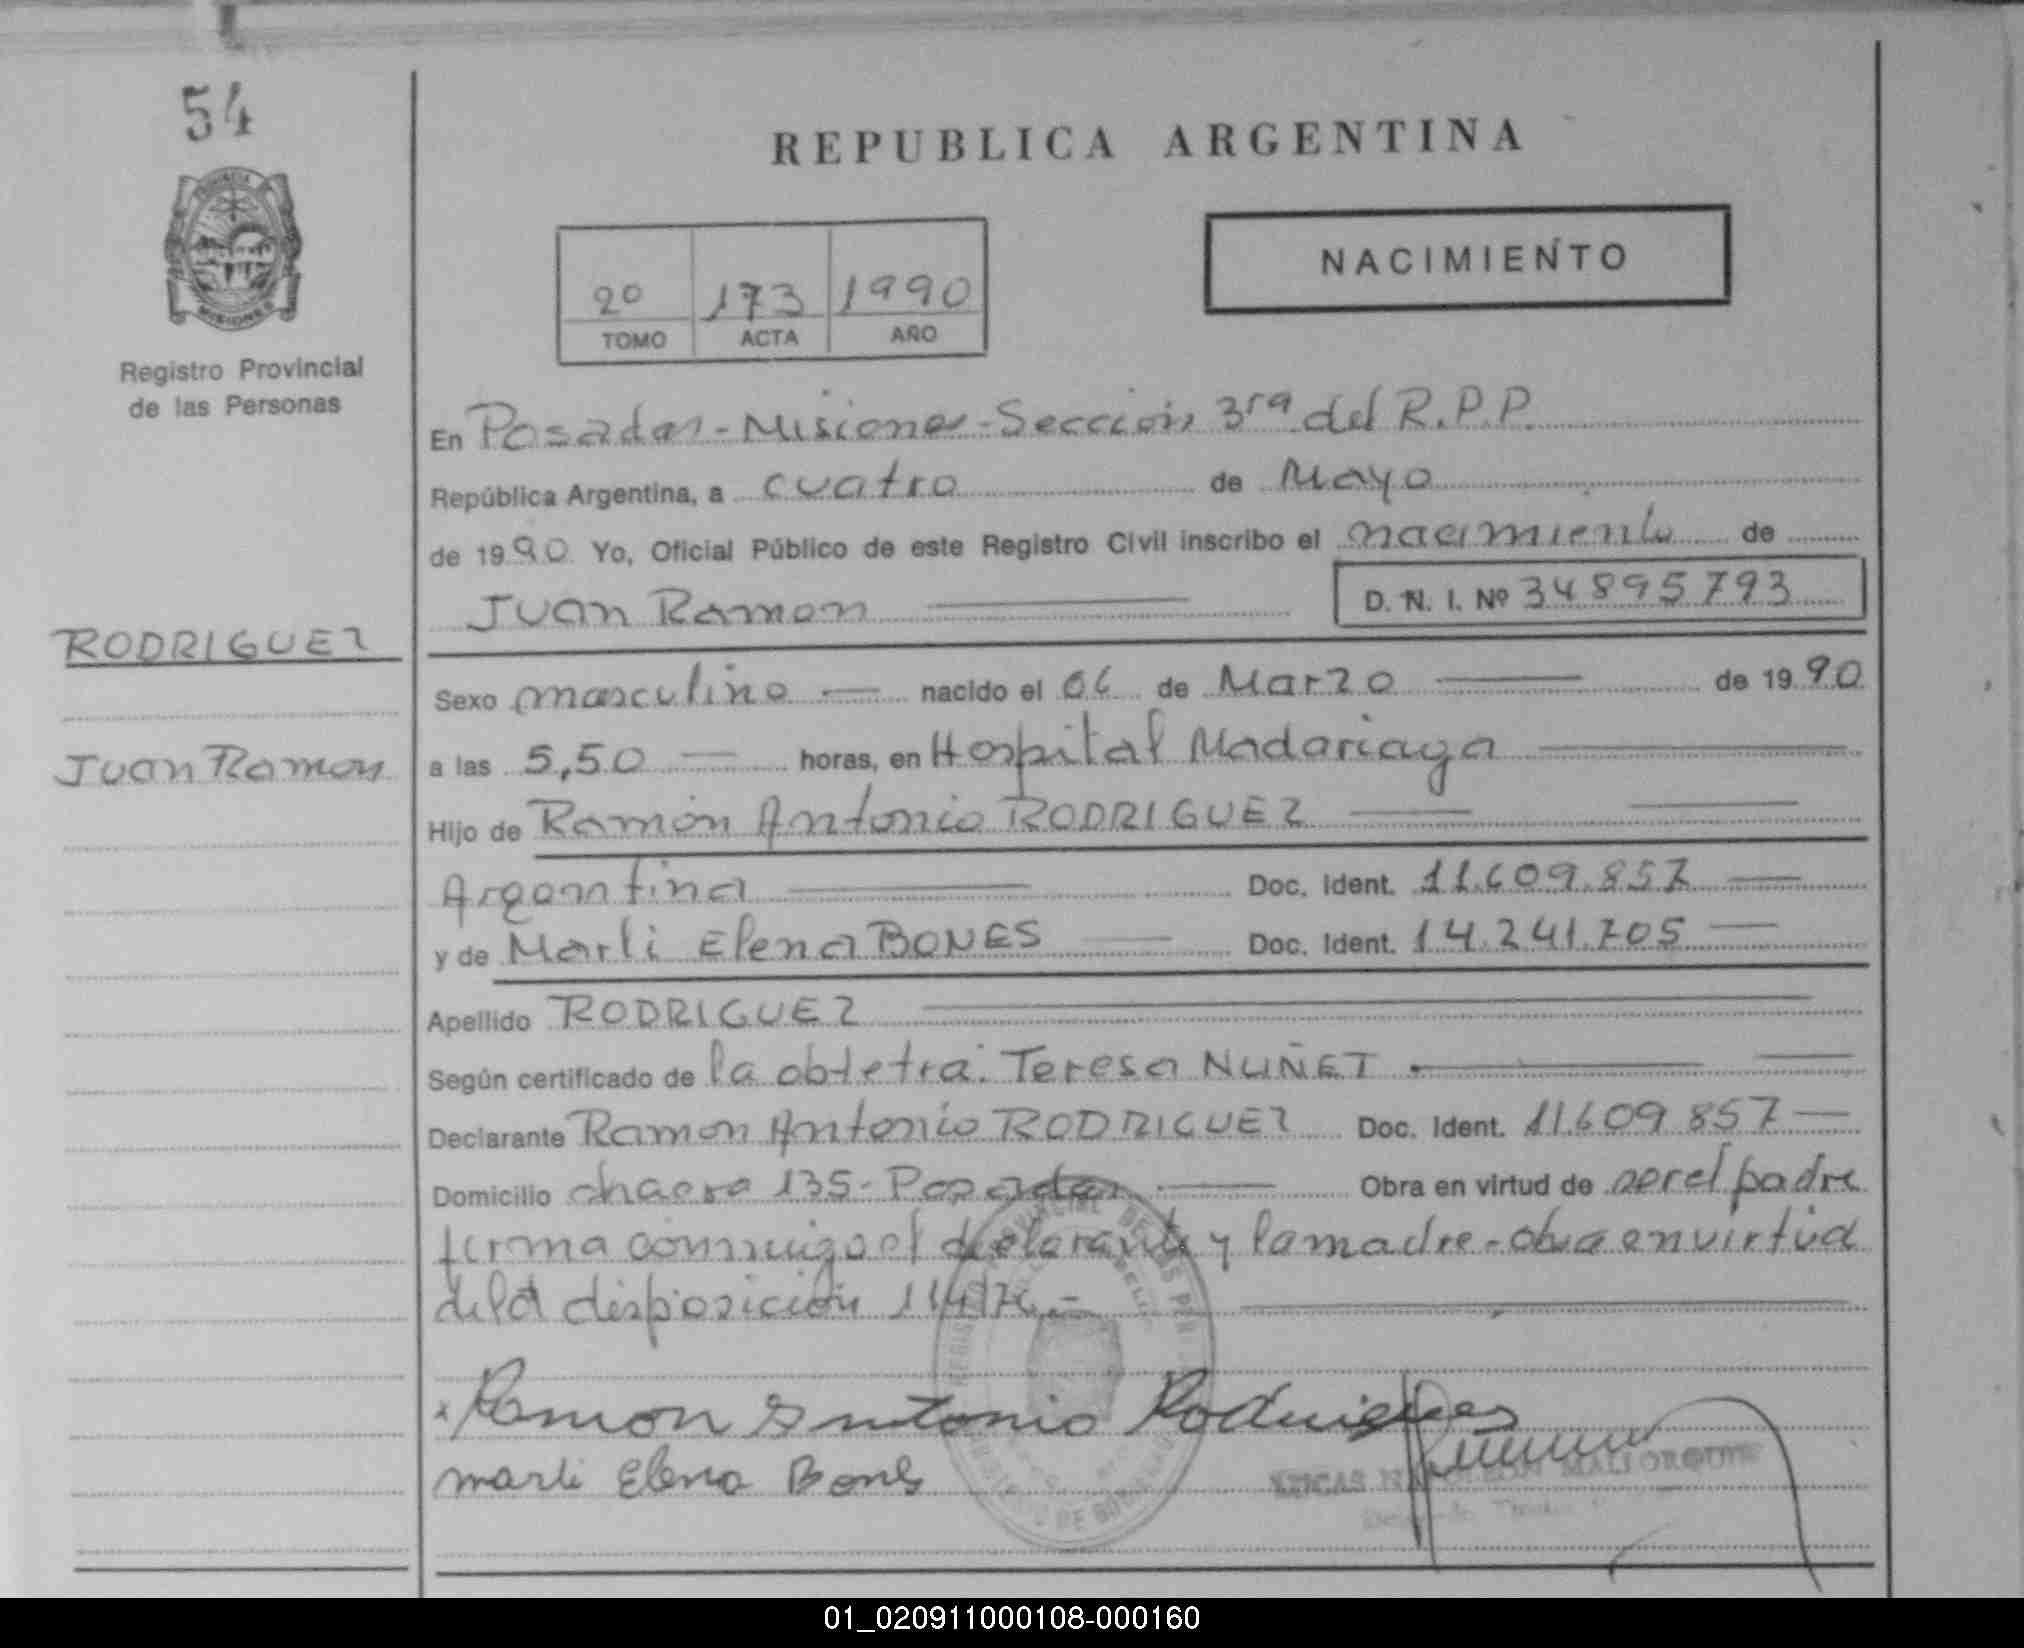 54
REPUBLICA ARGENTINA
NACIMIENTO
2º 173 1990
TOMO ACTA AÑO
PROVINCIA
MISIONES
Registro Provincial
de las Personas
En Posadas - Misiones - Sección 3ra del R.P.P.
República Argentina, a cuatro de Mayo
de 1990 Yo, Oficial Público de este Registro Civil inscribo el nacimiento de
Juan Ramon D.N.I. Nº 34895793
RODRIGUEZ
Juan Ramon
Sexo masculino nacido el 06 de Marzo de 1990
a las 5,50 horas, en Hospital Madariaga
Hijo de Ramón Antonio RODRIGUEZ
Argentina Doc. Ident. 11.609.857
y de Marli Elena BONES Doc. Ident. 14.241.705
Apellido RODRIGUEZ
Según certificado de la obtetra. Teresa NUÑET
Declarante Ramon Antonio RODRIGUEZ Doc. Ident. 11.609.857
Domicilio chacra 135 - Posadas Obra en virtud de ser el padre
firma conmigo el declarante y la madre - obra en virtud
de la disposición
Ramon Antonio Rodrigues
marli Elena Bones
MALLORQUIN
01_020911000108-000160